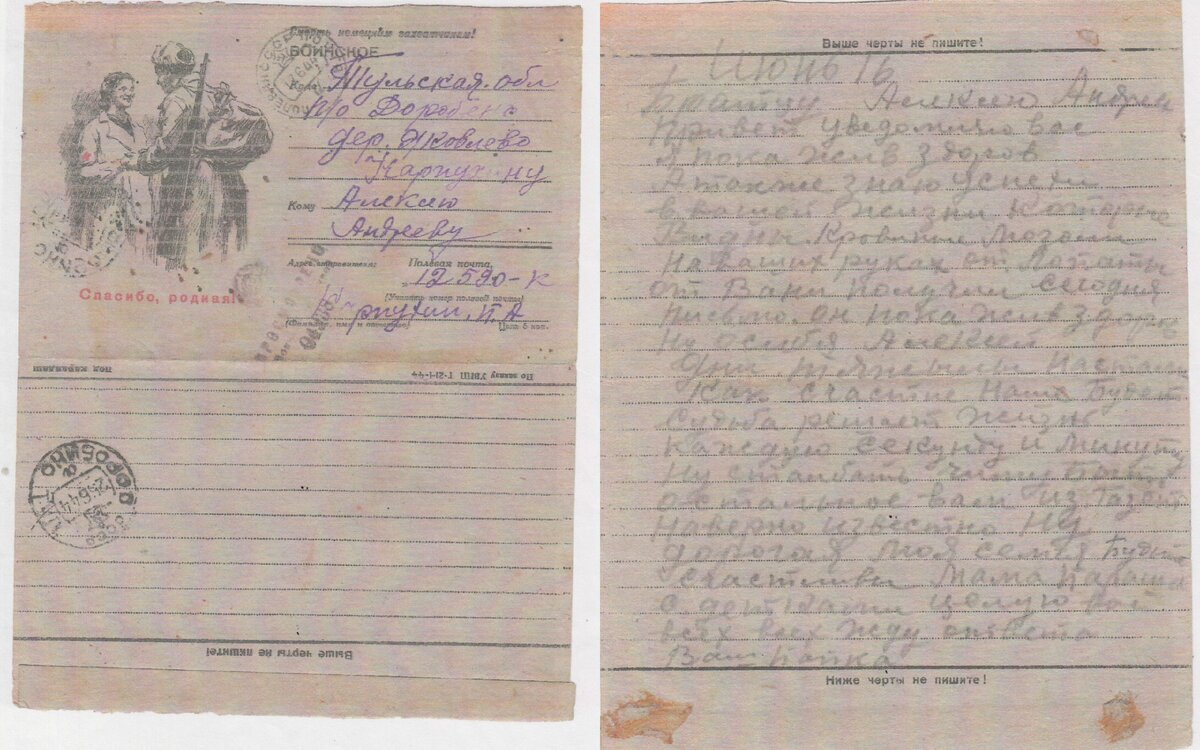 Смерть немецким захватчикам!
ВОИНСКОЕ
Куда Тульская. обл
п/о Доробино
дер. Яковлево
Карпухину
Кому Алексею
Андрееву
Адрес отправителя: Полевая почта,
12590-К
(Укажите номер полевой почты)
рпухин. П. А
(Фамилия, имя и отчество) Цена 5 коп.
Спасибо, родная!
ПРОСМОТРЕНО
По заказу УВПП Г-21-1-44
ДОРОБИНО
Выше черты не пишите!
Выше черты не пишите!
Июнь 16
Алексею Андрее
Привет уведомляю вас
Я пока жив здоров
А также знаю успехи
в вашей жизни которые
Видны. Кровавые мозоли
на ваших руках от лопаты
от Вани получил сегодня
письмо. он пока жив здоров
Ну Алексей
Дни
Как счастие наше будет
Судьба решает жизнь
каждую секунду и минуту
Ну
остальное вам из газет
наверно известно Ну
дорогая моя семья будте
счастливы мама Параша
с детками целую вас
всех всех жду ответа
Ваш папка
Ниже черты не пишите!